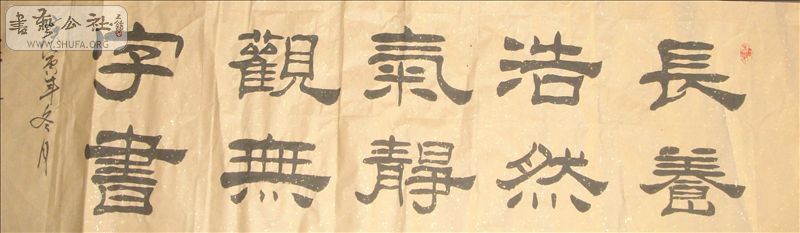 長養
浩然
氣靜
觀無
字書
寅年冬月
書藝公社
WWW.SHUFA.ORG